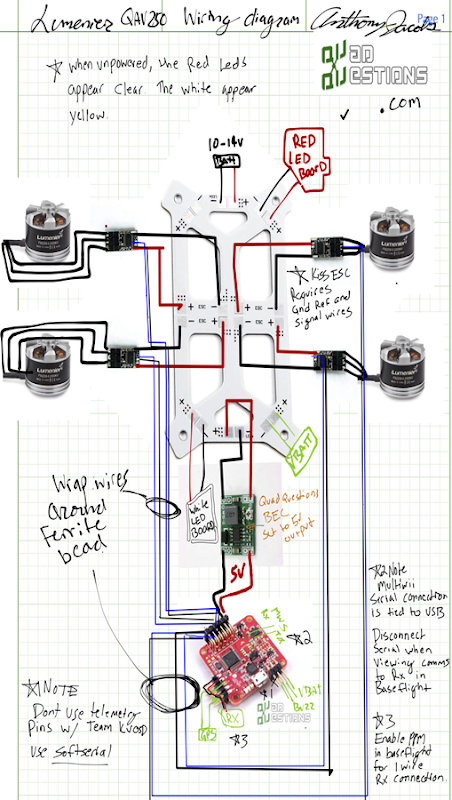 Lumenier QAV250 Wiring diagram
Anthony Jacobs
Page 1
QUAD
QUESTIONS
.com
☆ When unpowered, the Red Leds
appear Clear. The white appear
yellow.
10-14V
Batt
RED
LED
BOARD
Lumenier
Lumenier
☆ Kiss ESC
Requires
Gnd Ref and
signal wires
ESC
ESC
ESC
ESC
Lumenier
Lumenier
VBATT
White
LED
BOARD
QuadQuestions
BEC
Set to 5V
output
Wrap wires
around
Ferrite
bead
5V
☆2 Note
Multiwii
Serial connection
is tied to USB
Disconnect
Serial when
Viewing comms
to Rx in
Baseflight
☆2
☆1
VBatt
Buzz
RX
GPS
☆3
QUAD
QUESTIONS
☆1 NOTE
Dont use telemetry
Pins w/ Team
use softserial
☆3
Enable PPM
in baseflight
for 1 wire
Rx connection.